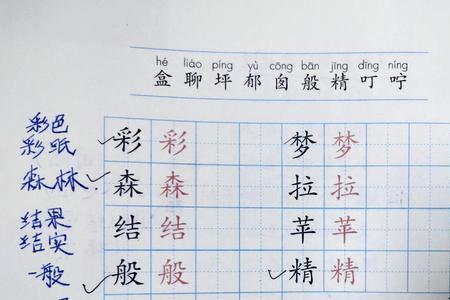 hé liáo píng yù cōng bān jīng dīng níng
盒 聊 坪 郁 囱 般 精 叮 咛
彩色
彩纸
彩 彩 梦 梦
森林
森 森 拉 拉
结果
结实
结 结 苹 苹
一般
般 般 精 精